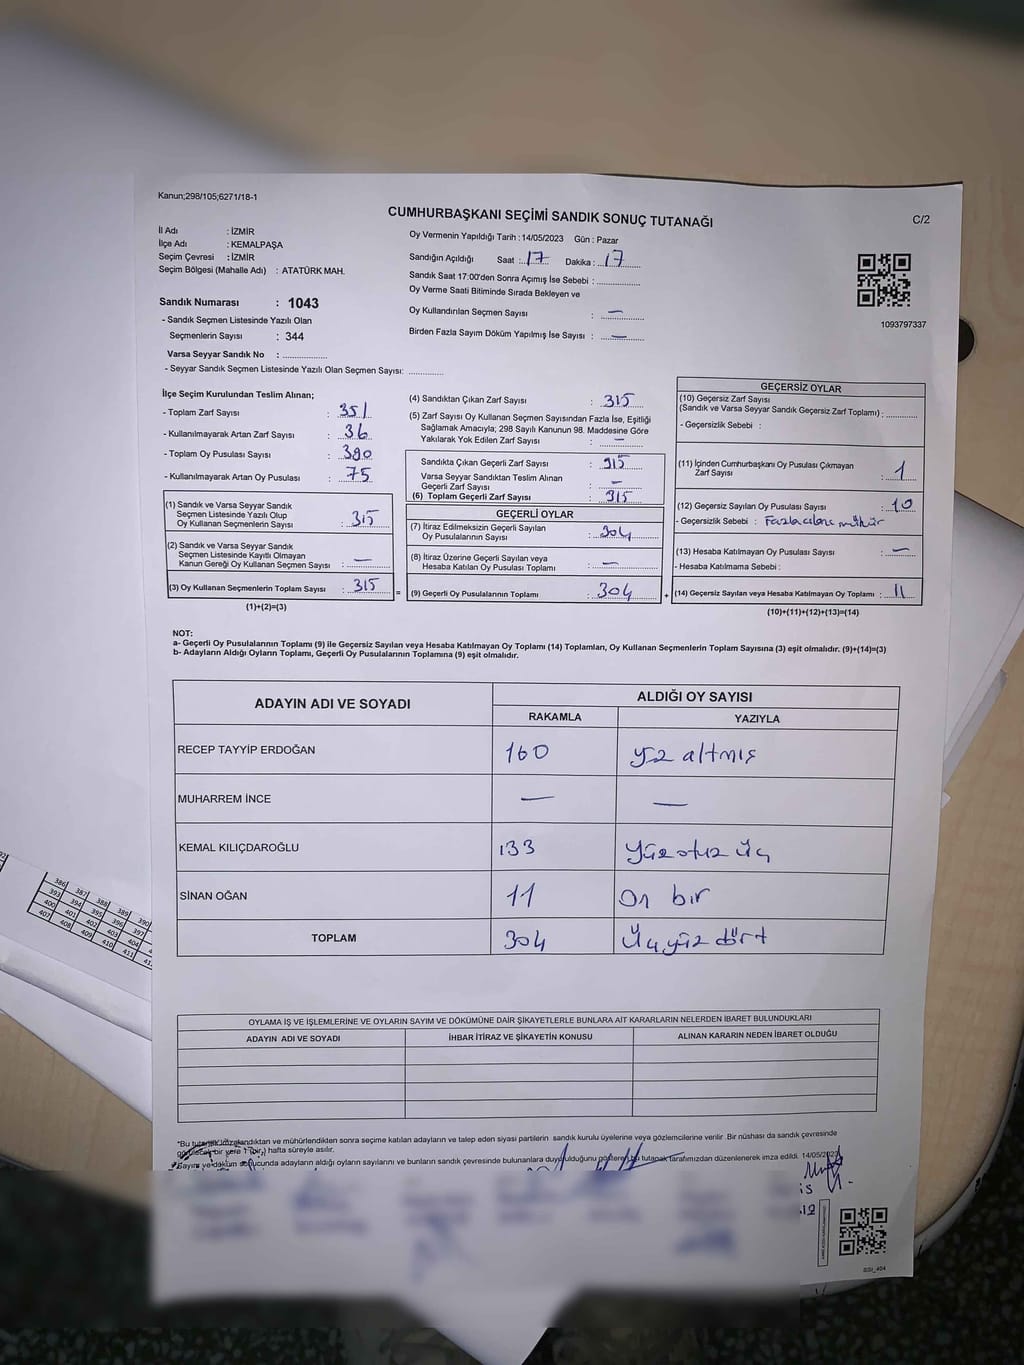 Kanun;298/105;6271/18-1
CUMHURBAŞKANI SEÇİMİ SANDIK SONUÇ TUTANAĞI
C/2
İl Adı : İZMİR
İlçe Adı : KEMALPAŞA
Seçim Çevresi : İZMİR
Seçim Bölgesi (Mahalle Adı) : ATATÜRK MAH.
Sandık Numarası : 1043
- Sandık Seçmen Listesinde Yazılı Olan
Seçmenlerin Sayısı : 344
Varsa Seyyar Sandık No : ............
- Seyyar Sandık Seçmen Listesinde Yazılı Olan Seçmen Sayısı: ............
Oy Vermenin Yapıldığı Tarih : 14/05/2023 Gün : Pazar
Sandığın Açıldığı Saat : 17 Dakika : 17
Sandık Saat 17:00'den Sonra Açımış İse Sebebi : ............
Oy Verme Saati Bitiminde Sırada Bekleyen ve
Oy Kullandırılan Seçmen Sayısı : —
Birden Fazla Sayım Döküm Yapılmış İse Sayısı : —
1093797337
İlçe Seçim Kurulundan Teslim Alınan;
- Toplam Zarf Sayısı : 351
- Kullanılmayarak Artan Zarf Sayısı : 36
- Toplam Oy Pusulası Sayısı : 390
- Kullanılmayarak Artan Oy Pusulası : 75
(1) Sandık ve Varsa Seyyar Sandık
Seçmen Listesinde Yazılı Olup
Oy Kullanan Seçmenlerin Sayısı : 315
(2) Sandık ve Varsa Seyyar Sandık
Seçmen Listesinde Kayıtlı Olmayan
Kanun Gereği Oy Kullanan Seçmen Sayısı : —
(3) Oy Kullanan Seçmenlerin Toplam Sayısı : 315
(1)+(2)=(3)
(4) Sandıktan Çıkan Zarf Sayısı : 315
(5) Zarf Sayısı Oy Kullanan Seçmen Sayısından Fazla İse, Eşitliği
Sağlamak Amacıyla; 298 Sayılı Kanunun 98. Maddesine Göre
Yakılarak Yok Edilen Zarf Sayısı : —
Sandıkta Çıkan Geçerli Zarf Sayısı : 315
Varsa Seyyar Sandıktan Teslim Alınan
Geçerli Zarf Sayısı : —
(6) Toplam Geçerli Zarf Sayısı : 315
GEÇERLİ OYLAR
(7) İtiraz Edilmeksizin Geçerli Sayılan
Oy Pusulalarının Sayısı : 304
(8) İtiraz Üzerine Geçerli Sayılan veya
Hesaba Katılan Oy Pusulası Toplamı : —
= (9) Geçerli Oy Pusulalarının Toplamı : 304 +
GEÇERSİZ OYLAR
(10) Geçersiz Zarf Sayısı
(Sandık ve Varsa Seyyar Sandık Geçersiz Zarf Toplamı) : ............
- Geçersizlik Sebebi :
(11) İçinden Cumhurbaşkanı Oy Pusulası Çıkmayan
Zarf Sayısı : 1
(12) Geçersiz Sayılan Oy Pusulası Sayısı : 10
- Geçersizlik Sebebi : Fazla mühür
(13) Hesaba Katılmayan Oy Pusulası Sayısı : —
- Hesaba Katılmama Sebebi :
(14) Geçersiz Sayılan veya Hesaba Katılmayan Oy Toplamı : 11
(10)+(11)+(12)+(13)=(14)
NOT:
a- Geçerli Oy Pusulalarının Toplamı (9) ile Geçersiz Sayılan veya Hesaba Katılmayan Oy Toplamı (14) Toplamları, Oy Kullanan Seçmenlerin Toplam Sayısına (3) eşit olmalıdır. (9)+(14)=(3)
b- Adayların Aldığı Oyların Toplamı, Geçerli Oy Pusulalarının Toplamına (9) eşit olmalıdır.
ADAYIN ADI VE SOYADI ALDIĞI OY SAYISI
RAKAMLA YAZIYLA
RECEP TAYYİP ERDOĞAN 160 yüz altmış
MUHARREM İNCE — —
KEMAL KILIÇDAROĞLU 133 Yüzotuz üç
SİNAN OĞAN 11 On bir
TOPLAM 304 Üçyüz dört
OYLAMA İŞ VE İŞLEMLERİNE VE OYLARIN SAYIM VE DÖKÜMÜNE DAİR ŞİKAYETLERLE BUNLARA AİT KARARLARIN NELERDEN İBARET BULUNDUKLARI
ADAYIN ADI VE SOYADI İHBAR İTİRAZ VE ŞİKAYETİN KONUSU ALINAN KARARIN NEDEN İBARET OLDUĞU
*Bu tutanak imzalandıktan ve mühürlendikten sonra seçime katılan adayların ve talep eden siyasi partilerin sandık kurulu üyelerine veya gözlemcilerine verilir. Bir nüshası da sandık çevresinde
görülecek bir yere 1 (bir) hafta süreyle asılır.
*Sayım ve döküm sonucunda adayların aldığı oyların sayılarını ve bunların sandık çevresinde bulunanlara duyurulduğunu gösteren bu tutanak tarafımızdan düzenlenerek imza edildi. 14/05/2023
386 387 388 389 390
393 394 395 396 397
400 401 402 403 404
407 408 409 410 411